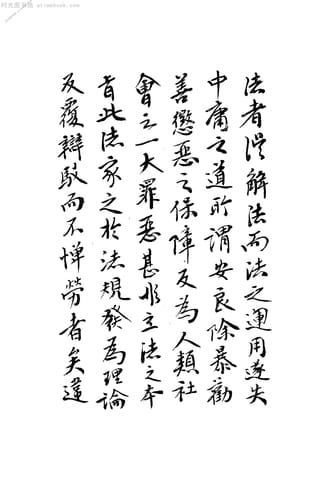 法者誤解法而法之運用遂失
中庸之道所謂安良除暴勸
善懲惡之保障反為人類社
會之一大罪惡甚非立法之本
旨此法家之於法規發為理論
反覆辯駁而不憚勞者矣